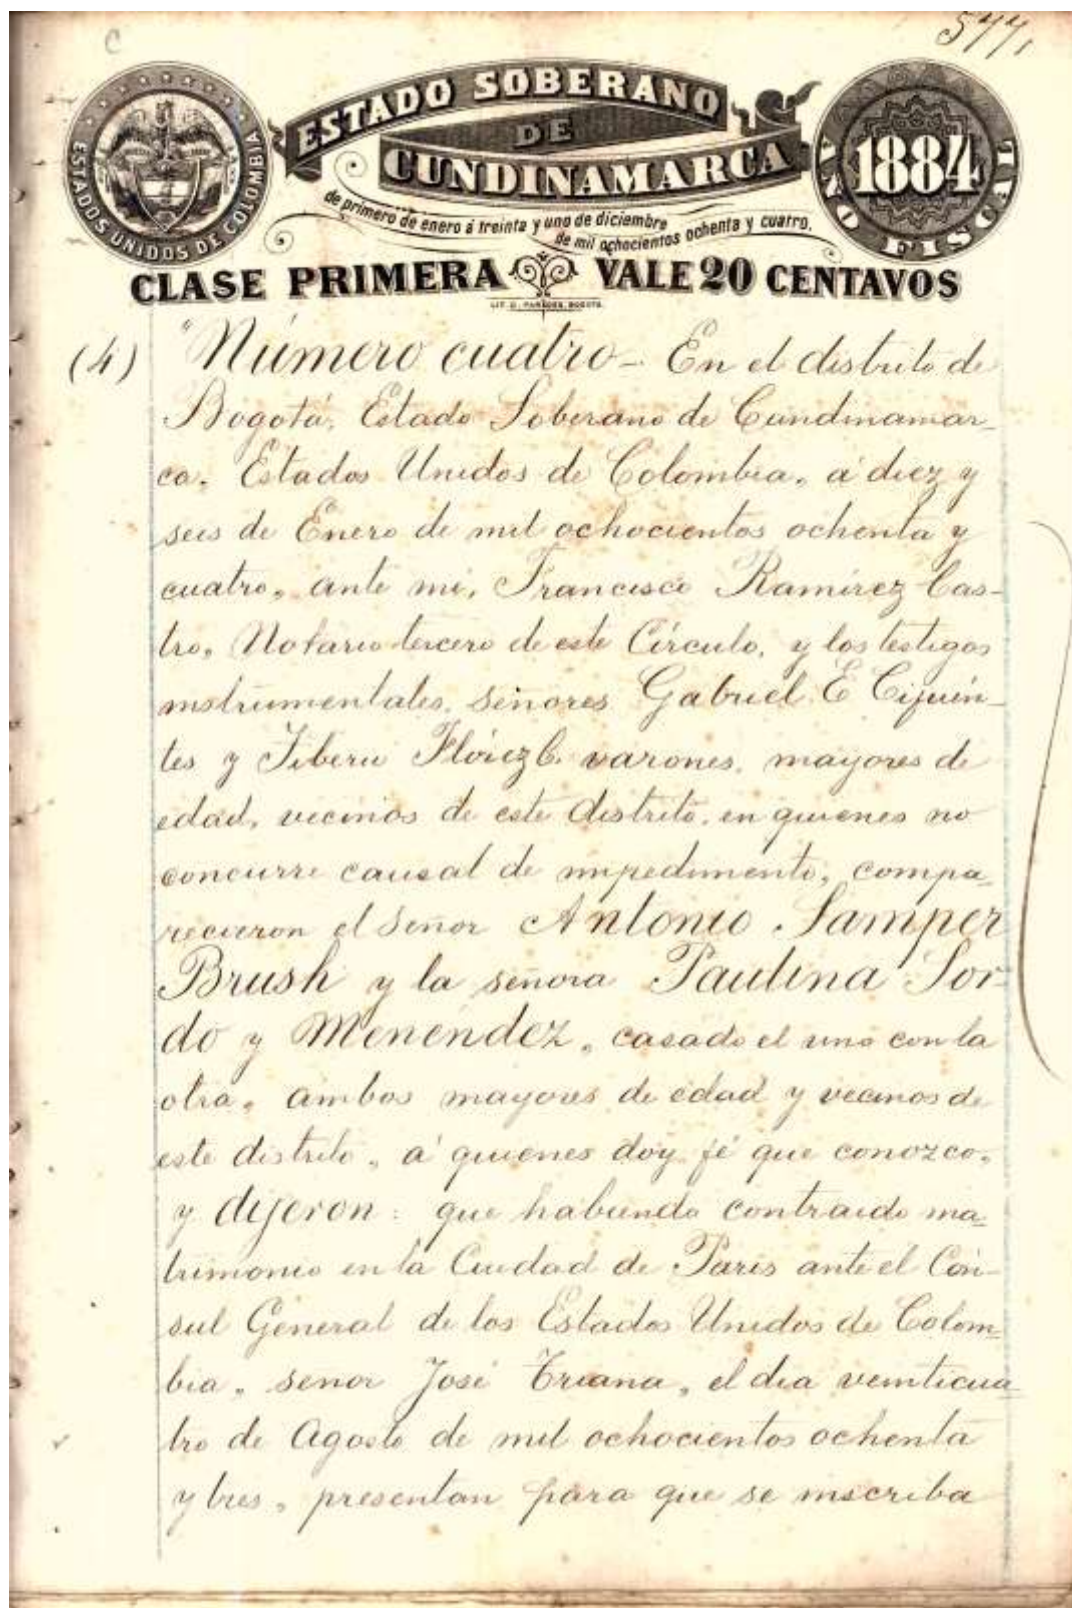 C
577,
ESTADOS UNIDOS DE COLOMBIA
ESTADO SOBERANO
DE
CUNDINAMARCA
1884
AÑO FISCAL
de primero de enero á treinta y uno de diciembre
de mil ochocientos ochenta y cuatro.
CLASE PRIMERA VALE 20 CENTAVOS
LIT. D. PAREDES. BOGOTÁ.
(4) "Número cuatro - En el distrito de
Bogotá, Estado Soberano de Cundinamar-
ca. Estados Unidos de Colombia, á diez y
seis de Enero de mil ochocientos ochenta y
cuatro, ante mi, Francisco Ramírez Cas-
tro, Notario tercero de este Círculo, y los testigos
instrumentales, señores Gabriel E Cifuén-
tes y Tiberio Flórez C. varones, mayores de
edad, vecinos de este distrito, en quienes no
concurre causal de impedimento, compa-
recieron el señor Antonio Samper
Brush y la señora Paulina Sor-
do y Menéndez, casado el uno con la
otra, ambos mayores de edad y vecinos de
este distrito, á quienes doy fé que conozco,
y dijeron: que habiendo contraido ma-
trimonio en la Ciudad de Paris ante el Cón-
sul General de los Estados Unidos de Colom-
bia, señor José Triana, el dia veinticua-
tro de Agosto de mil ochocientos ochenta
y tres, presentan para que se inscriba